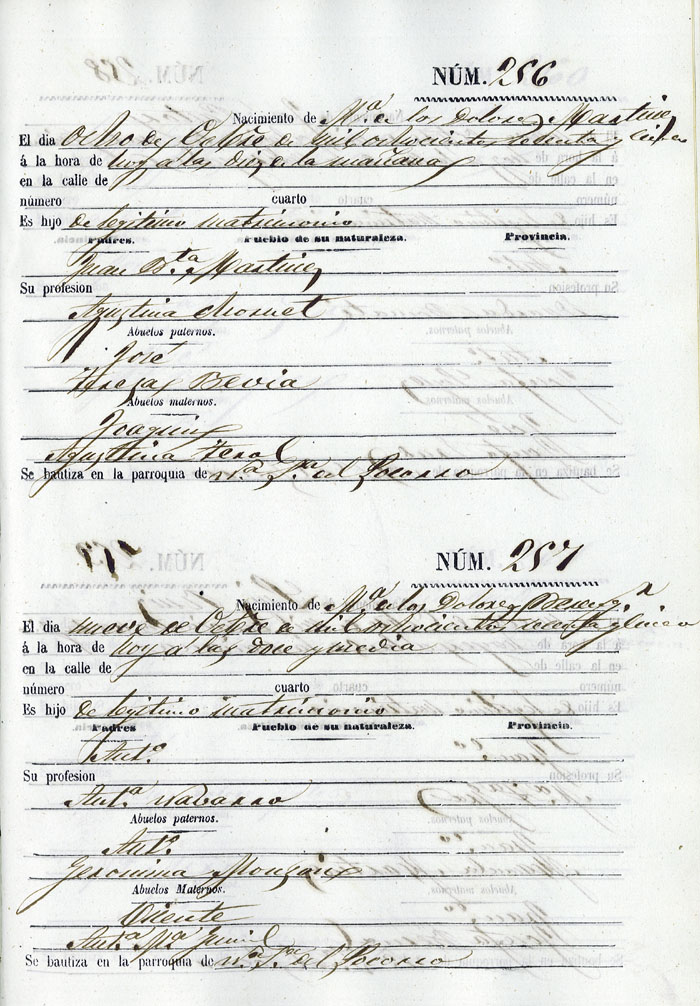 NÚM. 256
Nacimiento de M.ª de los Dolores Martinez
El dia ocho de Octbre de mil ochocientos sesenta y cinco
á la hora de hoy a las diez de la mañana
en la calle de
número cuarto
Es hijo de legitimo matrimonio
Padres. Pueblo de su naturaleza. Provincia.
Juan B.ta Martinez
Su profesion
Agustina Mornet
Abuelos paternos.
José
Teresa Brevia
Abuelos maternos.
Joaquin
Agustina Terol
Se bautiza en la parroquia de N.ª S.ra del Socorro
NÚM. 257
Nacimiento de M.ª de los Dolores
El dia nueve de Octbre de mil ochocientos sesenta y cinco
á la hora de hoy a las doce y media
en la calle de
número cuarto
Es hijo de legitimo matrimonio
Padres Pueblo de su naturaleza. Provincia.
Ant.º
Su profesion
Ant.ª Navarro
Abuelos paternos.
Ant.º
Geronima Monzon
Abuelos Maternos.
Vicente
Ant.ª M.ª
Se bautiza en la parroquia de N.ª S.ra del Socorro